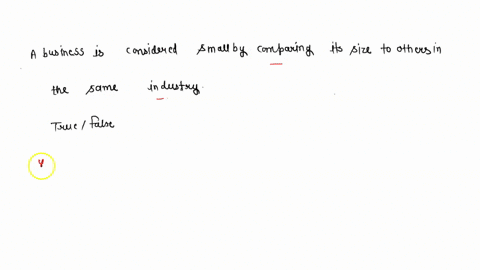 A business is considered small by comparing its size to others in
the same industry.
True / false